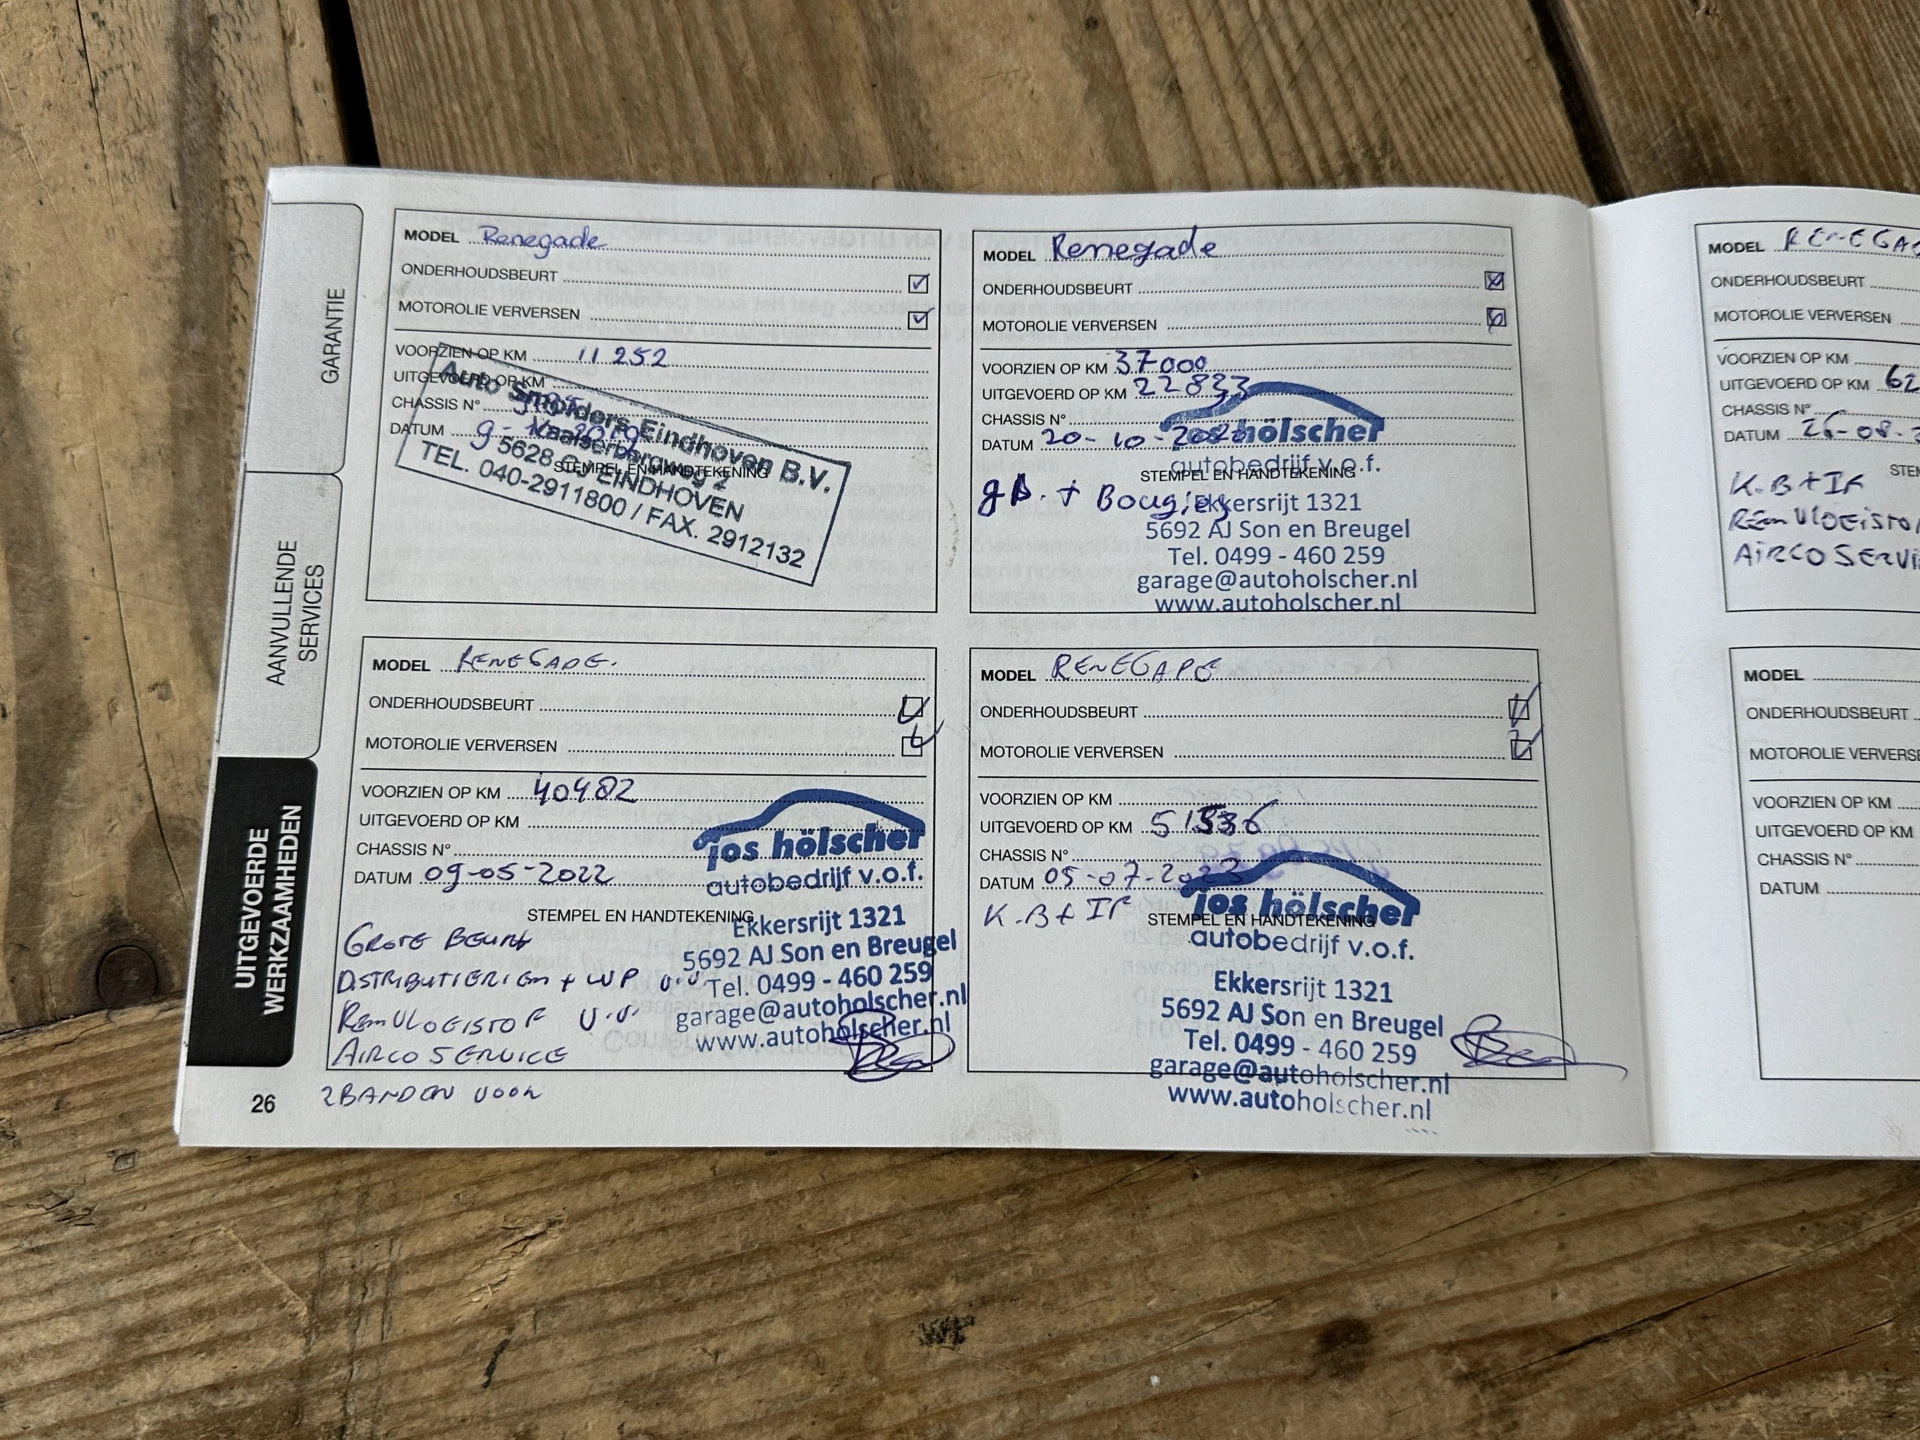 GARANTIE
AANVULLENDE
SERVICES
UITGEVOERDE
WERKZAAMHEDEN
MODEL Renegade
ONDERHOUDSBEURT
MOTOROLIE VERVERSEN
VOORZIEN OP KM 11 252
UITGEVOERD OP KM
CHASSIS N°
DATUM
STEMPEL EN HANDTEKENING
Auto Smolders Eindhoven B.V.
2
5628 EINDHOVEN
TEL. 040-2911800 / FAX. 2912132
MODEL Renegade
ONDERHOUDSBEURT
MOTOROLIE VERVERSEN
VOORZIEN OP KM 37000
UITGEVOERD OP KM 22833
CHASSIS N°
DATUM 20-10-
STEMPEL EN HANDTEKENING
gB. + Bougies
hölscher
autobedrijf v.o.f.
Ekkersrijt 1321
5692 AJ Son en Breugel
Tel. 0499 - 460 259
garage@autoholscher.nl
www.autoholscher.nl
MODEL RENEGADE.
ONDERHOUDSBEURT
MOTOROLIE VERVERSEN
VOORZIEN OP KM 40482
UITGEVOERD OP KM
CHASSIS N°
DATUM 09-05-2022
STEMPEL EN HANDTEKENING
GROTE BEURT
DISTRIBUTIERIEM + WP V.V.
REMVLOEISTOF V.V.
AIRCO SERVICE
2 BANDEN VOOR
jos hölscher
autobedrijf v.o.f.
Ekkersrijt 1321
5692 AJ Son en Breugel
Tel. 0499 - 460 259
garage@autoholscher.nl
www.autoholscher.nl
MODEL RENEGADE
ONDERHOUDSBEURT
MOTOROLIE VERVERSEN
VOORZIEN OP KM
UITGEVOERD OP KM 51536
CHASSIS N°
DATUM 05-07-2023
K.B + IF
STEMPEL EN HANDTEKENING
jos hölscher
autobedrijf v.o.f.
Ekkersrijt 1321
5692 AJ Son en Breugel
Tel. 0499 - 460 259
garage@autoholscher.nl
www.autoholscher.nl
26
MODEL RENEGAD
ONDERHOUDSBEURT
MOTOROLIE VERVERSEN
VOORZIEN OP KM
UITGEVOERD OP KM 62
CHASSIS N°
DATUM 26-08-2
STEM
K.B + IF
REMVLOEISTO
AIRCO SERVI
MODEL
ONDERHOUDSBEURT
MOTOROLIE VERVERSE
VOORZIEN OP KM
UITGEVOERD OP KM
CHASSIS N°
DATUM